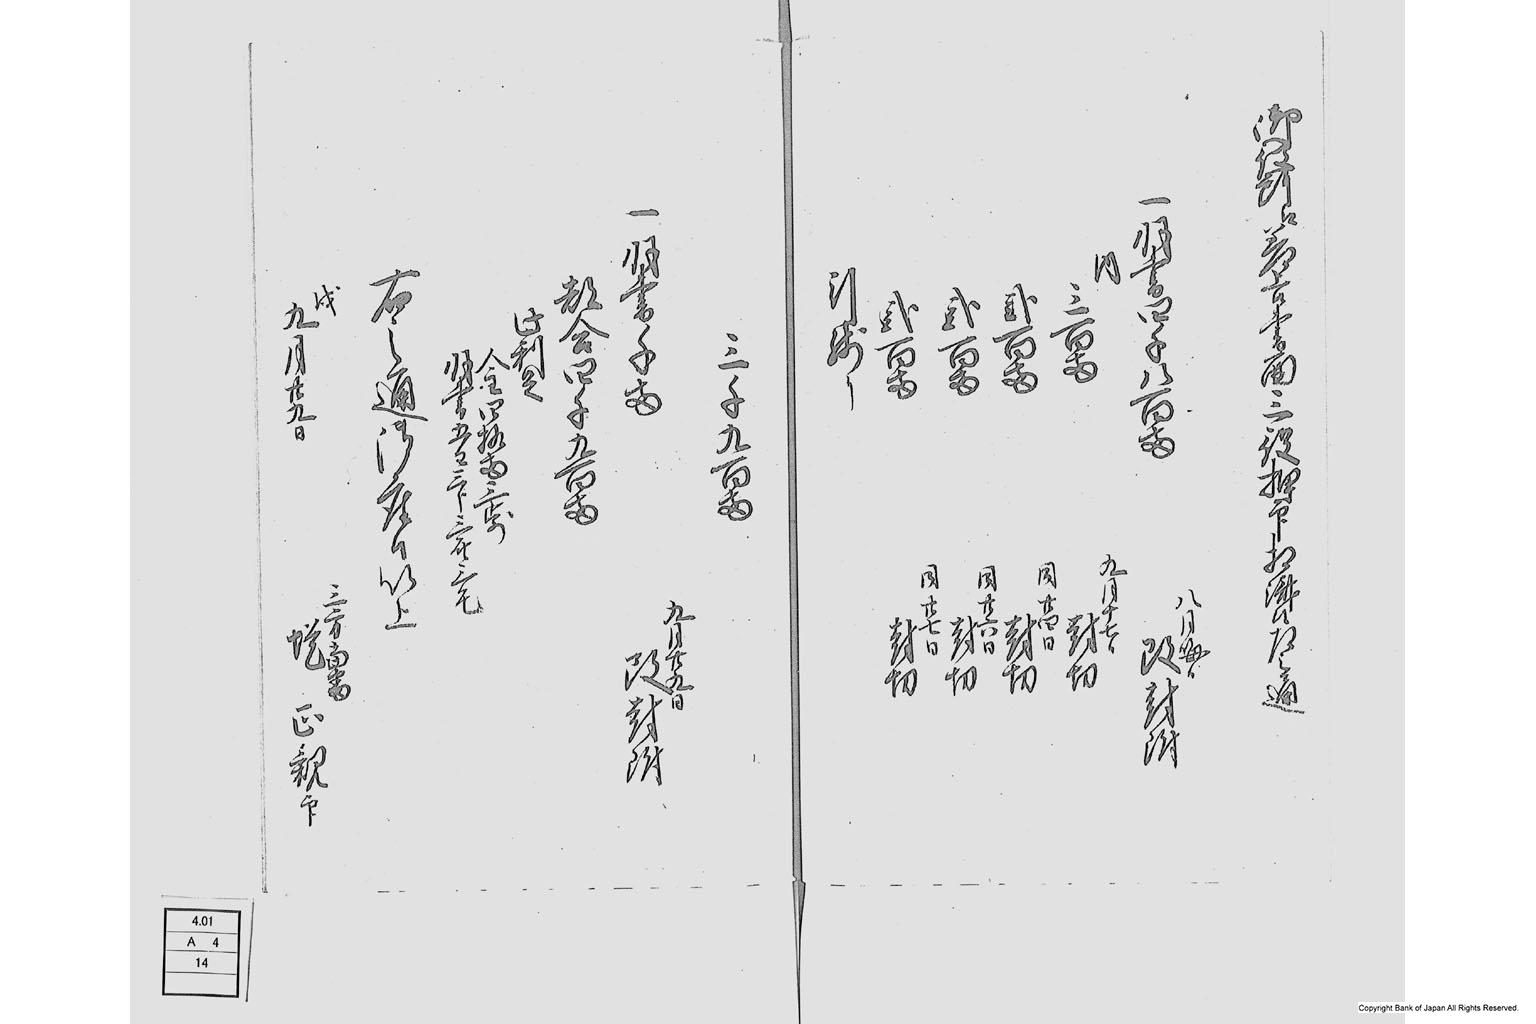 御役所江差上候書面三段押印相済候左之通
一羽書四千八百両
八月晦日
改封附
内
三百両
九月十七日
封切
弐百両
同廿四日
封切
弐百両
同廿六日
封切
弐百両
同廿七日
封切
引残り
三千九百両
一羽書千両
九月廿九日
改封附
都合四千九百両
此利足
金四拾両三歩
羽書五匁三分三厘三毛
右之通御座候以上
戌
九月廿九日
三方
正親印
4.01
A 4
14
Copyright Bank of Japan All Rights Reserved.